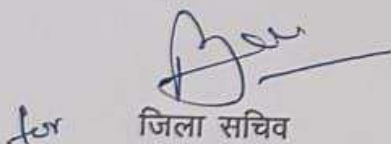 for जिला सचिव